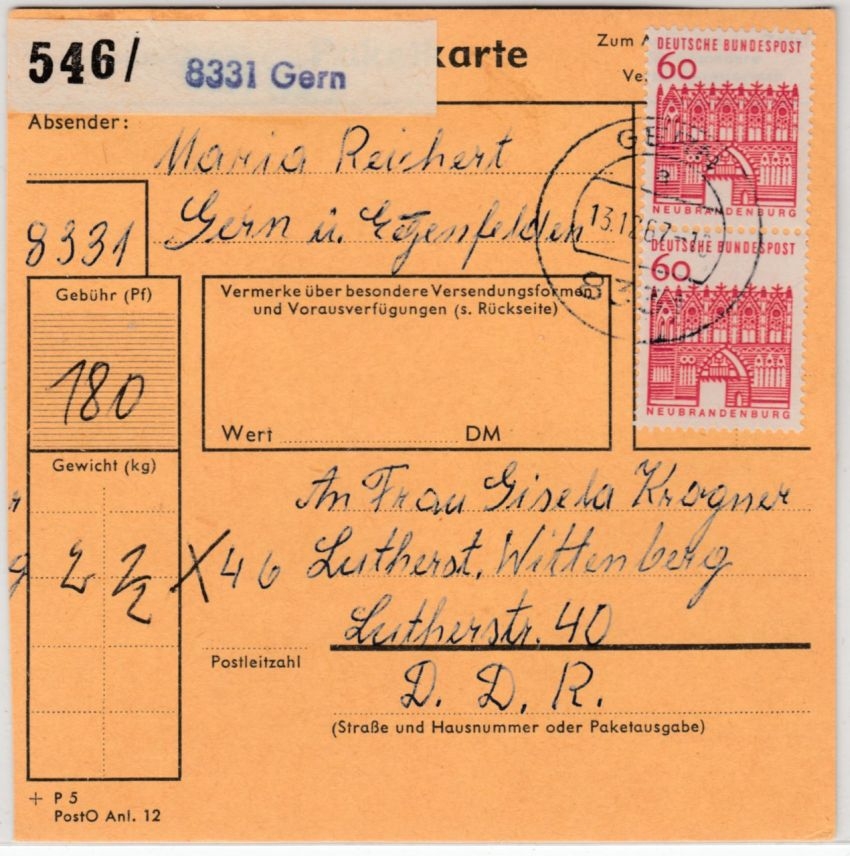 546/ 8331 Gern
karte
Zum A
Ve
DEUTSCHE BUNDESPOST
60
NEUBRANDENBURG
DEUTSCHE BUNDESPOST
60
NEUBRANDENBURG
13.12.67
8331
Absender:
Maria Reichert
8331 Gern ü. Eggenfelden
Gebühr (Pf)
180
Vermerke über besondere Versendungsformen
und Vorausverfügungen (s. Rückseite)
Wert DM
Gewicht (kg)
2 1/2
An Frau Gisela Krogner
X46 Lutherst. Wittenberg
Lutherstr. 40
Postleitzahl
D. D. R.
(Straße und Hausnummer oder Paketausgabe)
+ P 5
PostO Anl. 12